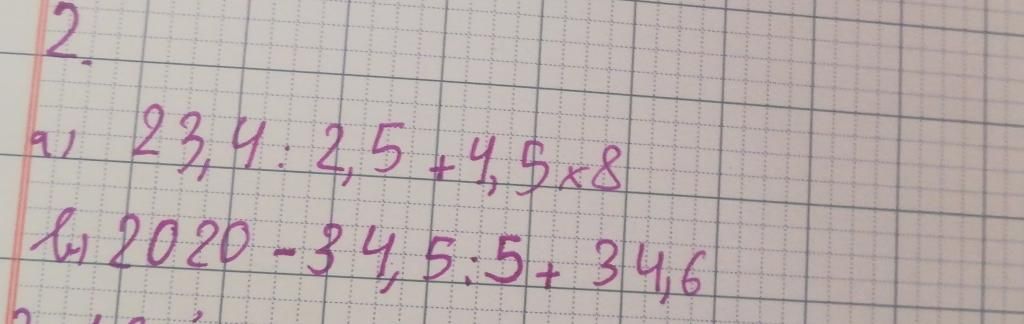 2.
a) 23,4 : 2,5 + 4,5 × 8
b) 2020 - 34,5 : 5 + 34,6